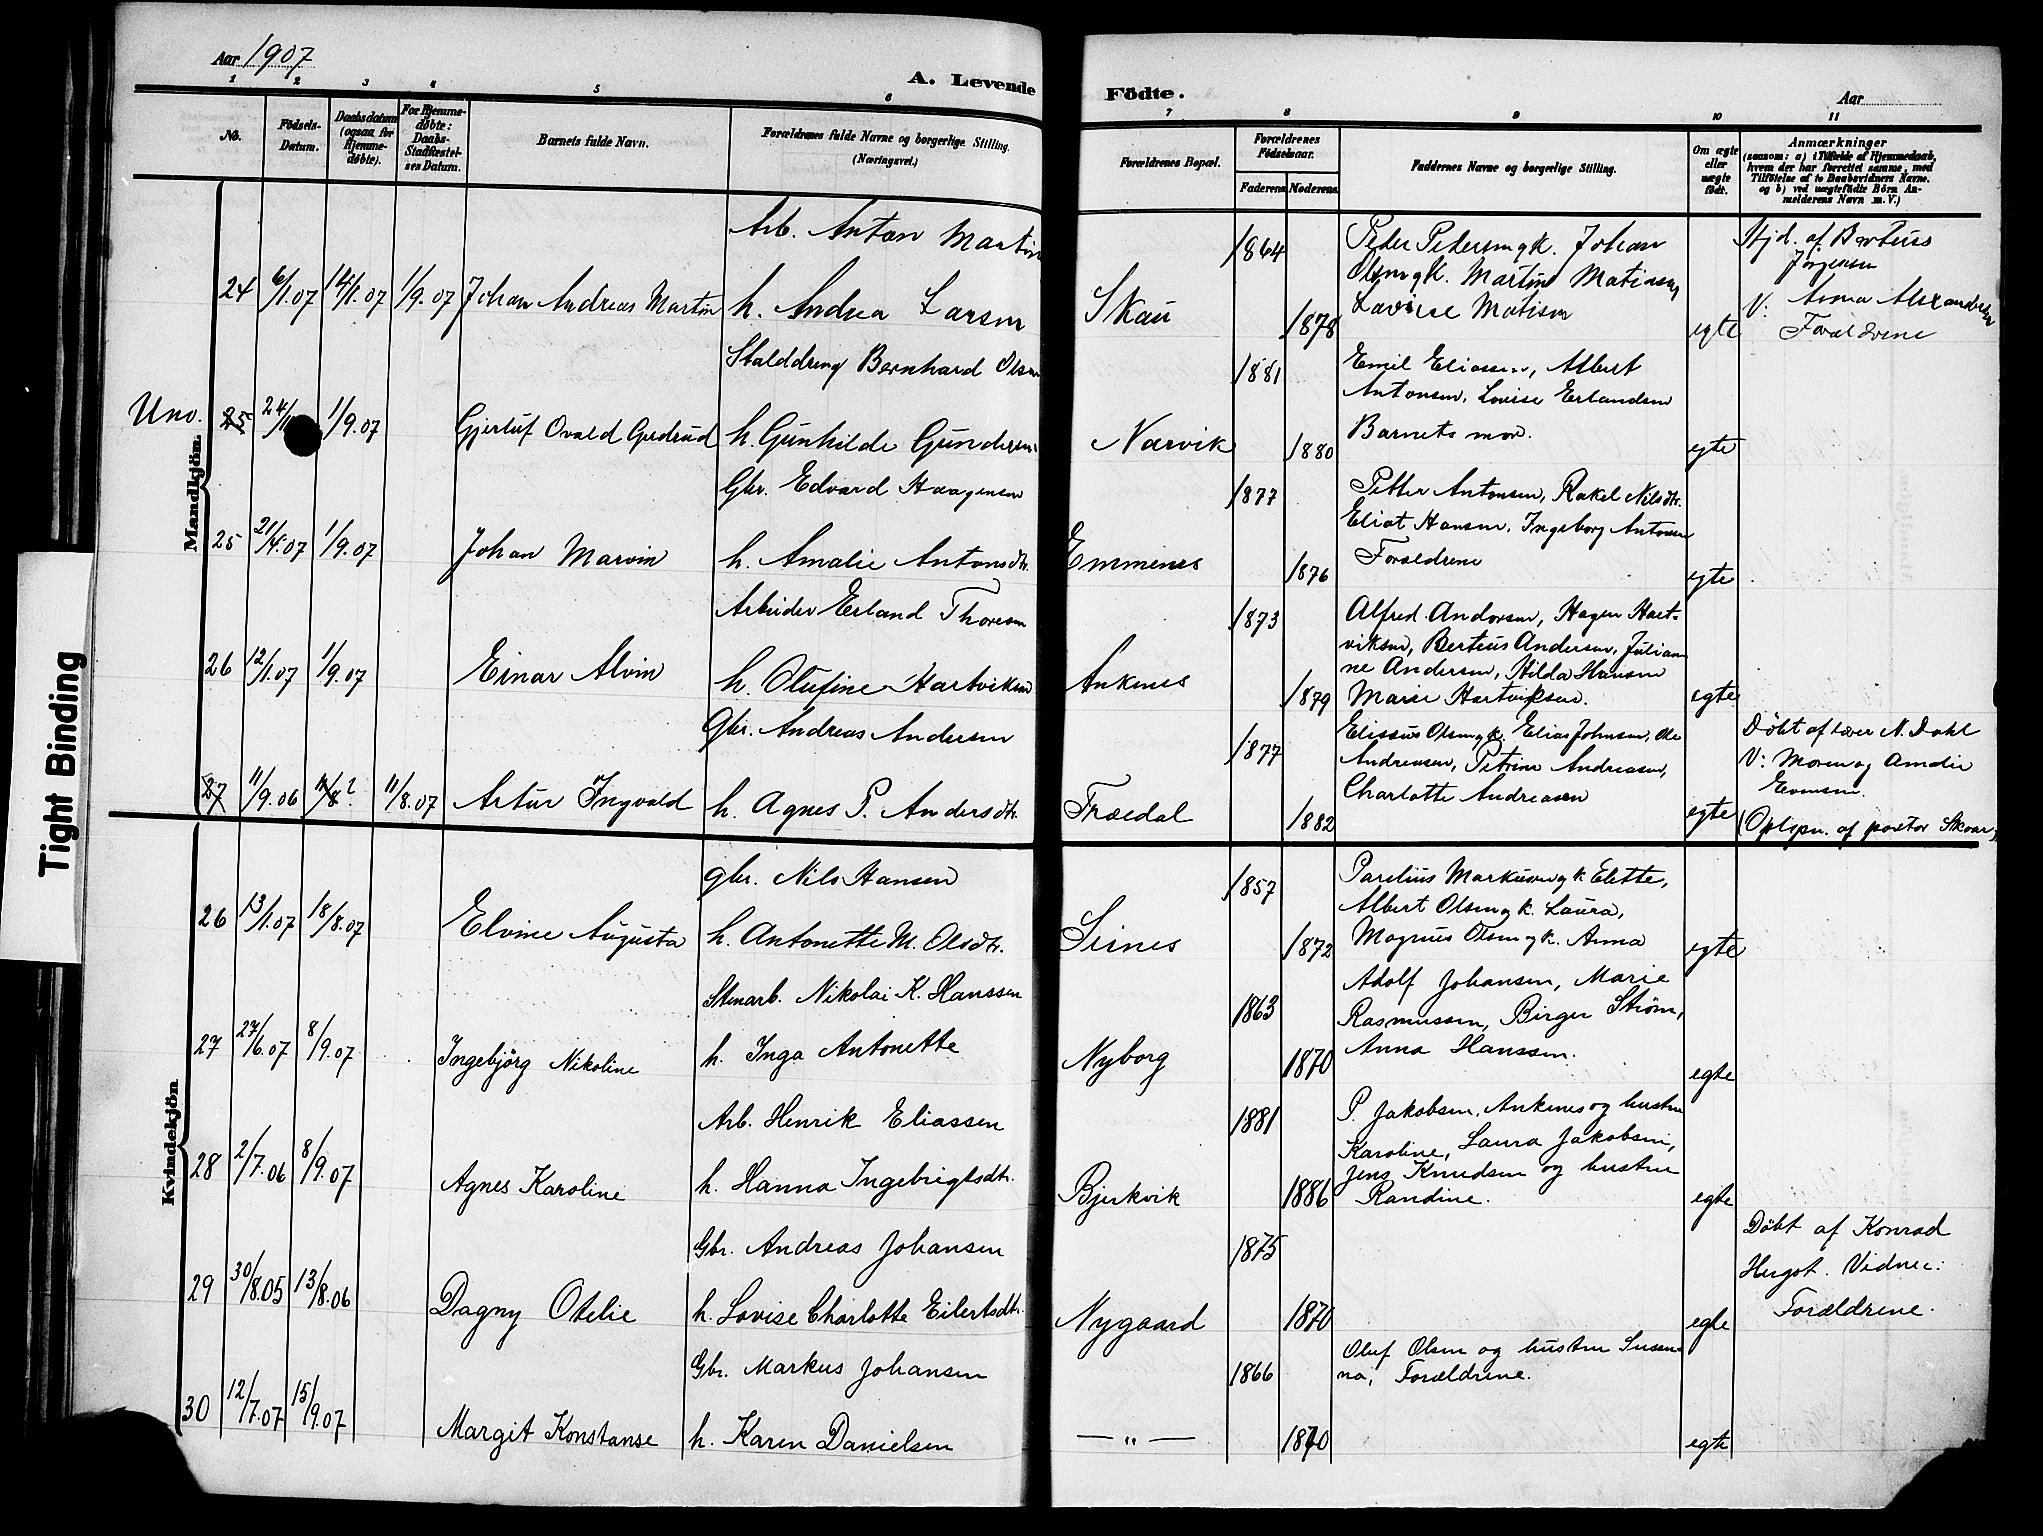 Aar 1907
A. Levende Fødte.
Aar
1 2 3 4 5 6 7 8 9 10 11
No.
Födsels-Datum.
Daabsdatum (ogsaa for Hjemmedøbte).
For Hjemmedøbte: Daabs-Stadfæstelses Datum.
Barnets fulde Navn.
Forældrenes fulde Navne og borgerlige Stilling. (Næringsvei.)
Forældrenes Bopæl.
Forældrenes Födselsaar.
Faderens Moderens
Faddernes Navne og borgerlige Stilling.
Om ægte eller uægte født.
Anmærkninger
(saasom: a) i Tilfælde af Hjemmedaab, hvem der har forrettet samme, med Tilføielse af to Daabsvidners Navne, og b) ved uægtefødte Börn Anmelderens Navn m. V.)
Mandkjön.
Arb. Anton Martin
24 6/1.07 14/1.07 1/9.07 Johan Andreas Martin h. Andrea Larsen
Skau 1864 1878
Peder Pedersen og k. Johan
Olsen og k. Martin Matisen,
Lovise Matisen
egte
Hjd. af Berteus
Jørgensen
V: Anna Alexandersen
Forældrene
Stalddreng Bernhard Olsen
Uno. 25 24/11 1/9.07 Gjerluf Ovald Gedrud h. Gunhilde Gundersen
Narvik 1881 1880
Emil Eliassen, Albert
Antonsen, Lovise Erlandsen
Barnets mor.
egte
Gbr. Edvard Haagensen
25 21/4.07 1/9.07 Johan Marvin h. Amalie Antonsdtr.
Emmenes 1877 1876
Petter Antonsen, Rakel Nilsdtr.
Eliot Hansen, Ingeborg Antonsen
Forældrene
egte
Arbeider Erland Thoresen
26 12/1.07 1/9.07 Einar Alvin h. Olufine Hartviksen
Ankenes 1873 1879
Alfred Andersen, Hagen Hart-
viksen, Berteus Andersen, Julian-
ne Andersen, Hilda Hansen
Marie Hartviksen.
egte
Gbr. Andreas Andersen
27 11/9.06 11/8? 11/8.07 Artur Ingvald h. Agnes P. Andersdtr.
Trældal 1877 1882
Elissus Olsen og k. Elias Johnsen, Ole
Andreasen, Petrine Andreasen,
Charlotte Andreasen
egte
Döbt af lærer N. Dahl
V: Moren og Amalie
Evensen.
(Oplysn. af pastor Skaar)
Kvindekjön
gbr. Nils Hansen
26 13/1.07 18/8.07 Elvine Augusta h. Antonette M. Olsdtr.
Seines 1857 1872
Parelius Markusen og k. Elette,
Albert Olsen og k. Laura,
Magnus Olsen og k. Anna
egte
Stenarb. Nikolai K. Hanssen
27 27/6.07 8/9.07 Ingebjörg Nikoline h. Inga Antonette
Nyborg 1863 1870
Adolf Johansen, Marie
Rasmussen, Birger Strøm,
Anna Hanssen.
egte
Arb. Henrik Eliassen
28 2/7.06 8/9.07 Agnes Karoline h. Hanna Ingebrigtsdtr.
Bjerkvik 1881 1886
P. Jakobsen, Ankenes og hustru
Karoline, Laura Jakobsen,
Jens Knudsen og hustru
Randine.
egte
Gbr. Andreas Johansen
29 30/8.05 13/8.06 Dagny Otelie h. Lovise Charlotte Eilertsdtr.
Nygaard 1875 1870
egte
Döbt af Konrad
Hergot. Vidner:
Forældrene.
Gbr. Markus Johansen
30 12/7.07 15/9.07 Margit Konstanse h. Karen Danielsen
— „ — 1866 1870
Oluf Olsen og hustru Susan-
na, Forældrene.
egte
Tight Binding